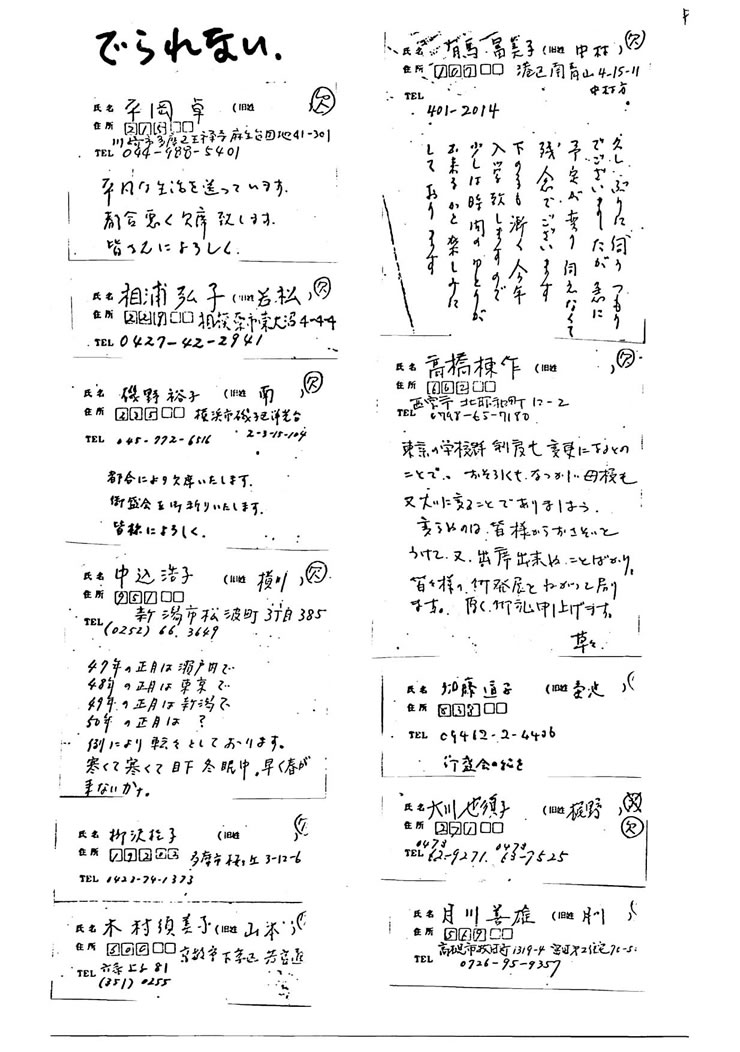 でられない.
氏名 平岡 卓 (旧姓 ) 欠
住所 215□□
川崎市多摩区王禅寺 麻生台団地41-301
TEL 044-988-5401
平凡な生活を送っています.
都合悪く欠席致します.
皆さんによろしく.
氏名 相浦弘子 (旧姓 若松) 欠
住所 229□□ 相模原市東大沼4-4-4
TEL 0427-42-2941
氏名 磯野裕子 (旧姓 南 ) 欠
住所 235□□ 横浜市磯子区洋光台
2-3-15-104
TEL 045-772-6516
都合により欠席いたします.
御盛会を御祈りいたします.
皆様によろしく.
氏名 中込浩子 (旧姓 横川) 欠
住所 951□□
新潟市松波町3丁目385
TEL (0252) 66. 3649
47年の正月は瀬戸内で
48年の正月は東京で
49年の正月は新潟で
50年の正月は ?
例により転々としております。
寒くて寒くて目下冬眠中.早く春が
来ないかナ。
氏名 柳沢桂子 (旧姓
住所 192 多摩市桜ヶ丘3-12-6
TEL 0423-74-1373
氏名 木村須美子 (旧姓 山本)
住所 600□□ 京都市下京区
TEL 81
(351) 0255
氏名 有馬冨美子 (旧姓 中村) 欠
住所 107□□ 港区南青山4-15-11
中村方
TEL
401-2014
久しぶりに伺うつもり
でございましたが急に
予定が変り伺えなくて
残念でございます
下の子も漸く今年
入学致しますので
少しは時間のゆとりが
出来るかと楽しみに
しております
氏名 高橋棟作 (旧姓 ) 欠
住所 662□□
西宮市 北昭和町12-2
TEL 0798-65-7180
東京の学校群制度も変更になるとの
ことで、おそらくも、なつかしい母校も
又大いに変ることでありましょう.
変らぬのは、皆様からおさそいを
うけて、又、出席出来ぬことばかり.
皆々様の御発展をねがって居り
ます。 厚く御礼申上げます.
草々
氏名 加藤道子 (旧姓 菊池)
住所 838□□
TEL 09462-2-4406
御盛会の程を
氏名 大川 (旧姓 梶野) 欠
住所 271□□
TEL 0473 62-9271. 0473 63-7525
氏名 月川善雄 (旧姓 月川)
住所 569□□
高槻市 1319-4
TEL 0726-95-9357